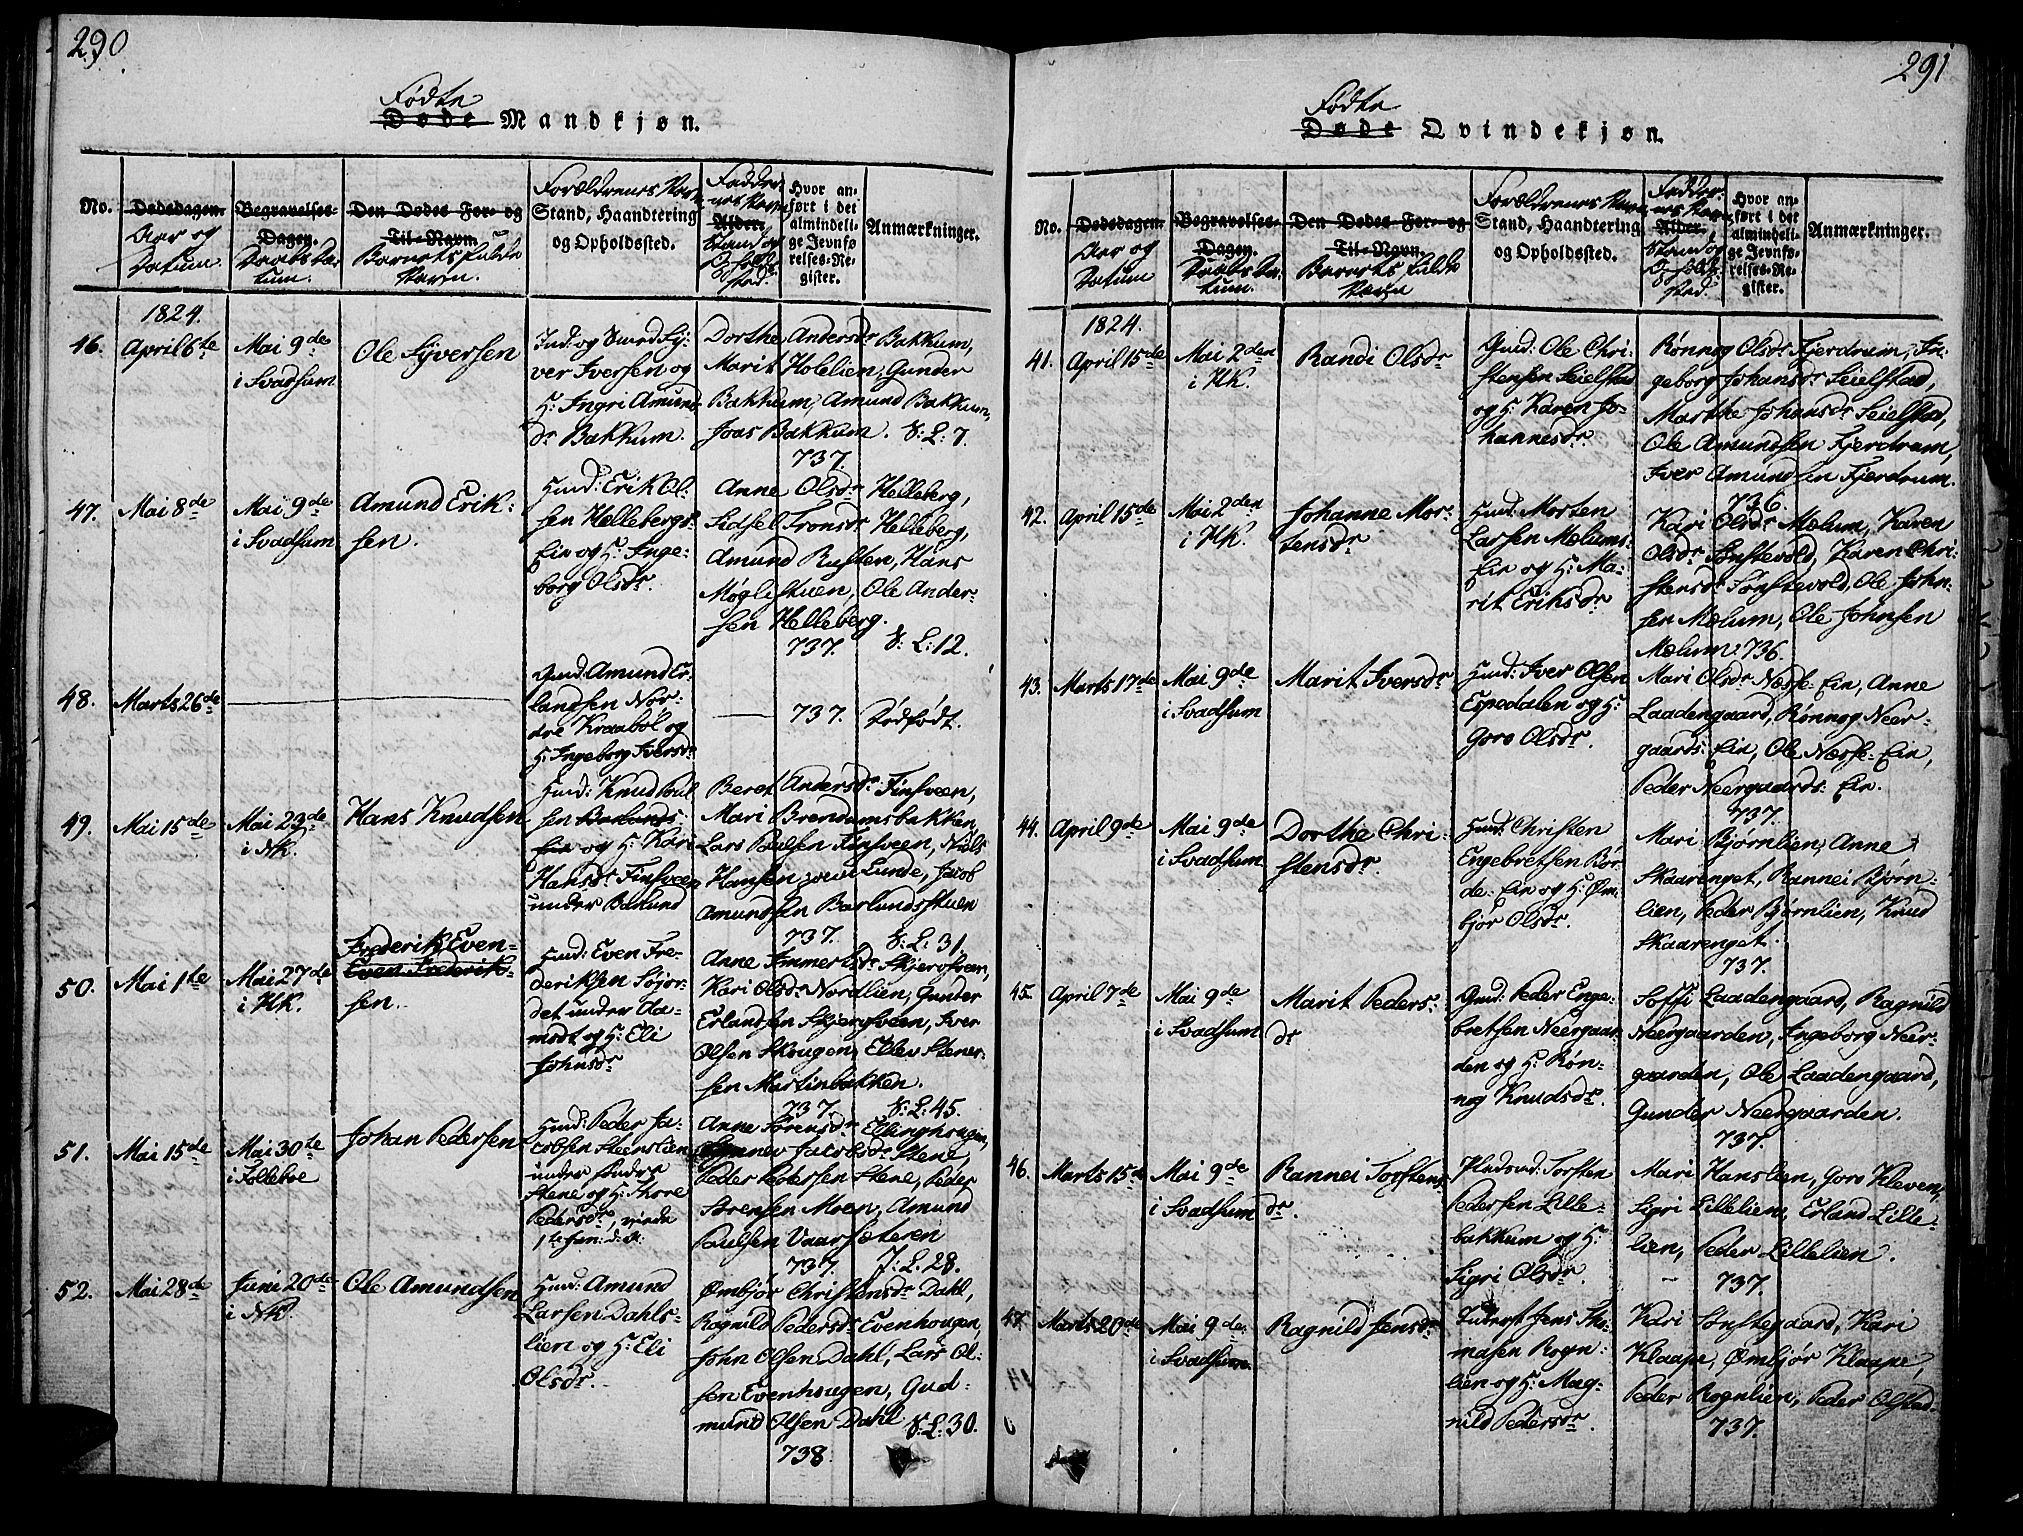 290
Fødte
Døde Mandkjøn.
No.
Dødsdagen.
Aar og
Datum.
Begravelses-
Dagen.
Daabs Da-
tum.
Den Dødes For- og
Til-Navn.
Barnets fulde
Navn.
Forældrenes Navn
Stand, Haandtering
og Opholdssted.
Faddernes Navn
Alder.
Stand og
Opholds
sted.
Hvor an-
ført i det
almindeli-
ge Jevnfø
relses-Re-
gister.
Anmærkninger.
1824.
46. April 6te
Mai 9de
i Svadsum
Ole Syversen
Ind: og Smed Sy-
ver Iversen og
H: Ingri Amunds
dr Bakkum.
Dorthe Andersdr Bakkum,
Marit Holelien, Gunder
Bakkum, Amund Bakkum,
Joas Bakkum. V: L: 7.
737.
47. Mai 8de
Mai 9de
i Svadsum
Amund Erik-
sen.
Huusd: Erik Ol-
sen Hellebergs-
Eie og H: Inge-
borg Olsdr.
Anne Olsdr Helleberg,
Sidsel Tronsdr Helleberg,
Amund Rusten, Hans
Møglistuen, Ole Ander-
sen Helleberg.
737. V: L: 12.
48. Marts 26de
Gmd: Amund Er-
landsen Nor-
dre Kraabøl og
H: Ingeborg Iversdr
737. Dødfødt.
49. Mai 15de
Mai 23de
i NK.
Hans Knudsen
Huusd: Knud Poul
sen Barlunds-
Eie og H: Kari
Hansdr Finsveen
under Bamrud
Beret Andersdr Finsveen,
Mari Brendumsbakken,
Lars Paulsen Finsveen, Niels
Hansen Lunde, Jacob
Amundsen Barlundsstuen
737. V: L: 31.
50. Mai 1te
Mai 27de
i HK.
Frederik Even-
Even Frederik-
sen.
Huusd: Even Fre-
deriksen Sojor-
det under Aa-
modt og H: Eli
Johnsdr
Anne Immertsdr Skjervsveen,
Kari Olsdr Nordlien, Gunder
Erlandsen Skjervsveen, Iver
Olsen Skougen, Ellev Stener-
sen Martinbakken.
737. V: L: 45.
51. Mai 15de
Mai 30te
i Folleboe
Johan Pedersen
Huusd: Peder Ja-
cobsen Steenslien
under Søndre
Stene og H: Thore
Pedersdr,
Anne Sørensdr Ellinghougen,
Jacobsdr Stene,
Peder Pedersen Stene, Peder
Sørensen Moen, Amund
Paulsen Vaarsæteren
737. F: L. 28.
52. Mai 28de
Juni 20de
i NK.
Ole Amundsen
Huusd: Amund
Larsen Dahls-
lien og H: Eli
Olsdr.
Ømbjør Christensdr Dahl,
Ragnild Pedersdr Evenhougen,
John Olsen Dahl, Lars Ol-
sen Evenhougen, Gud-
mund Olsen Dahl V: L: 30.
738.
291
Fødte
Døde Qvindekjøn.
No.
Dødsdagen.
Aar og
Datum
Begravelses-
Dagen.
Daabs Da-
tum.
Den Dødes For- og
Til-Navn.
Barnets fulde
Navn
Forældrenes Navn
Stand, Haandtering
og Opholdssted.
Fadder-
nes Navn
Alder,
Stand og
Opholds-
sted.
Hvor an-
ført i det
almindeli-
ge Jevnfø-
relses-Re-
gister.
Anmærkninger.
1824.
41. April 15de
Mai 2den
i HK.
Randi Olsdr
Gmd: Ole Chri-
stensen Seielstad
og H: Karen Jo-
hannesdr.
Rønnog Olsdr Fjerdrum, In-
geborg Johansdr Seielstad,
Marthe Johansdr Seielstad,
Ole Amundsen Fjerdrum,
Iver Amundsen Fjerdrum.
736.
42. April 15de
Mai 2den
i HK.
Johanne Mor-
tensdr
Huusd: Morten
Larsen Mælums-
Eie og H: Ma-
rit Eriksdr
Kari Olsdr Mælum, Karen
Olsdr Sønstevold, Karen Chri-
stensdr Sønstevold, Ole John-
sen Mælum, Ole Johnsen
Mælum. 736.
43. Marts 17de
Mai 9de
i Svadsum
Marit Iversdr
Huusd: Iver Olsen
Espedalen og H:
Goro Olsdr.
Mari Olsdr Næsse-Eie, Anne
Laadengaard, Rønnog Neer-
gaards-Eie, Ole Næsse-Eie,
Peder Neergaards-Eie.
737.
44. April 9de
Mai 9de
i Svadsum
Dorthe Chri-
stensdr.
Huusd: Christen
Engebretsen Bør
de-Eie og H: Øm-
bjør Olsdr.
Mari Bjørnlien, Anne
Skaarenget, Rannei Bjørn-
lien, Peder Bjørnlien, Knud
Skaarenget.
737.
45. April 7de
Mai 9de
i Svadsum
Marit Peders-
dr
Gmd: Peder Enge-
bretsen Neergaar-
den og H: Røn-
nog Knudsdr.
Soffi Laadengaard, Ragnild
Neergaarden, Ingeborg Neer-
gaarden, Ole Laadengaard,
Gunder Neergaarden.
737.
46. Marts 15de
Mai 9de
i Svadsum
Rannei Torstens
dr.
Huusd: Torsten
Pedersen Lille-
bakkum og H:
Sigri Olsdr.
Mari Hanslien, Goro Kleven,
Sigri Lillelien, Erland Lille-
lien, Peder Lillelien.
737.
47. Marts 20de
Mai 9de
i Svadsum
Ragnild Jensdr
Inderst Jens Tho-
masen Rogn-
lien og H: Mag-
nild Pedersdr
Kari Sønstegaard, Kari
Klaape, Ømbjør Klaape,
Peder Rognlien, Peder Olstad.
737.